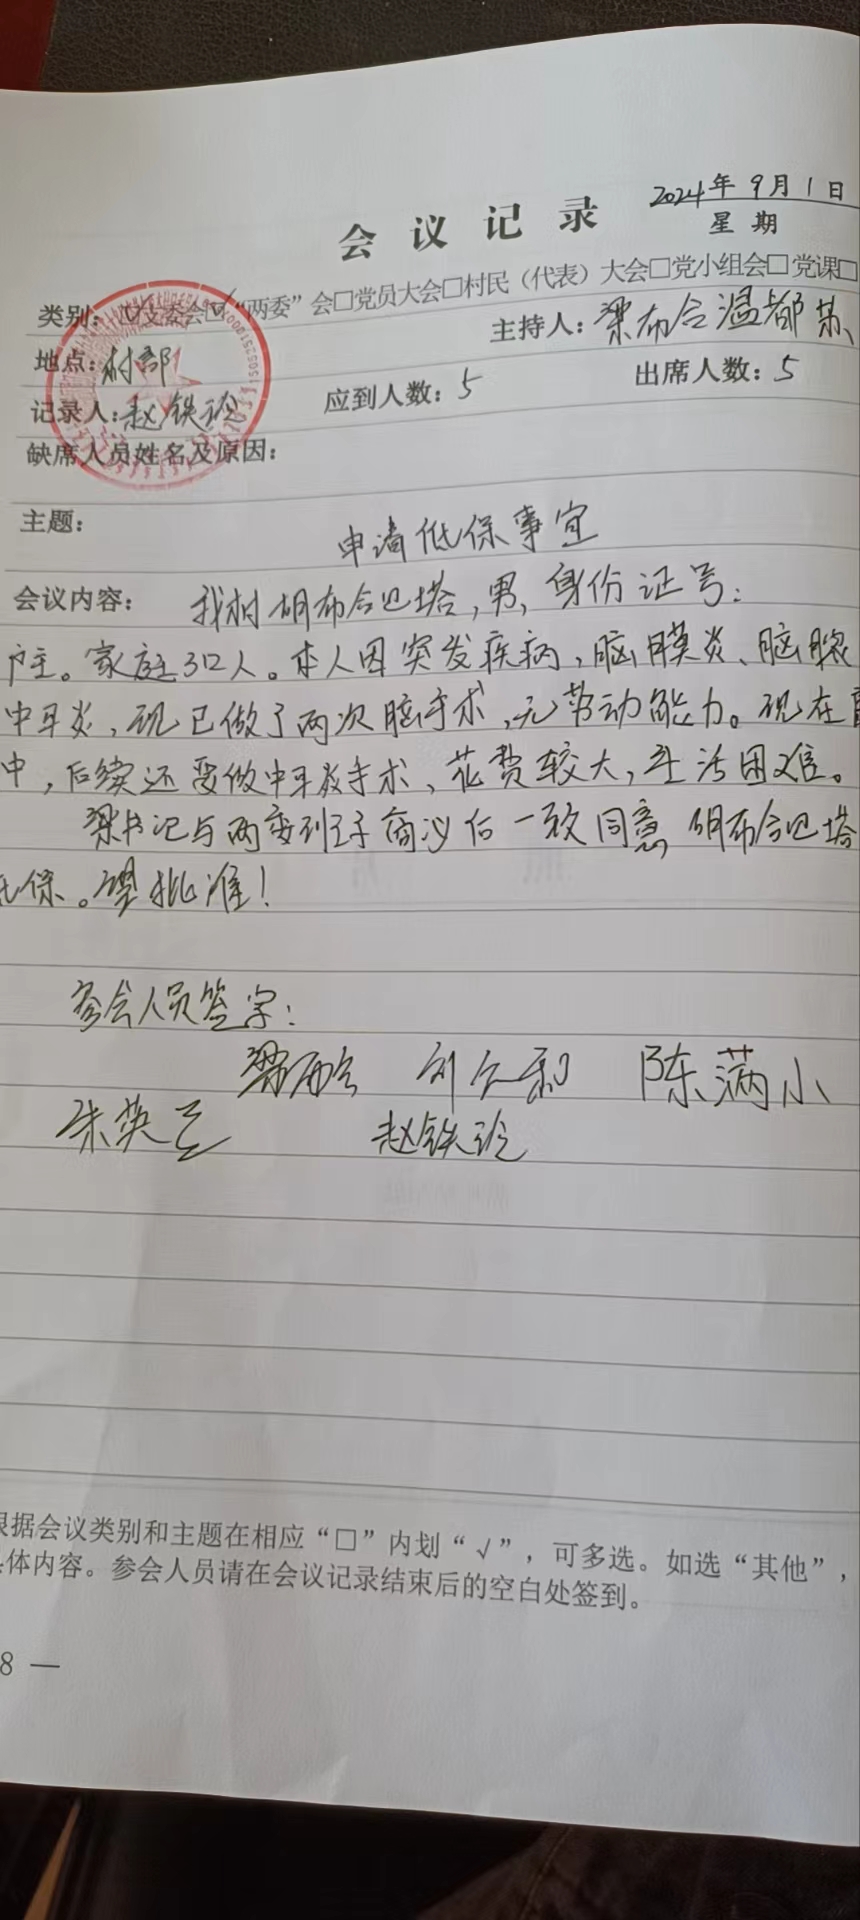 2024年9月1日
会议记录 星期
类别: 支委会☑“两委”会□党员大会□村民（代表）大会□党小组会□党课□
地点:村部 主持人:梁布合温都苏
记录人:赵铁玲 应到人数:5 出席人数:5
缺席人员姓名及原因:
主题: 申请低保事宜
会议内容: 我村胡布合巴塔,男,身份证号:
户主。家庭3口人。本人因突发疾病,脑膜炎、脑脓
中耳炎,现已做了两次脑手术,无劳动能力。现在
中,后续还要做中耳炎手术、花费较大,生活困难。
梁书记与两委班子商议后一致同意 胡布合巴塔
低保。望批准!
参会人员签字:
梁布合 陈满小
朱英 赵铁玲
根据会议类别和主题在相应“□”内划“√”，可多选。如选“其他”，
体内容。参会人员请在会议记录结束后的空白处签到。
8 —